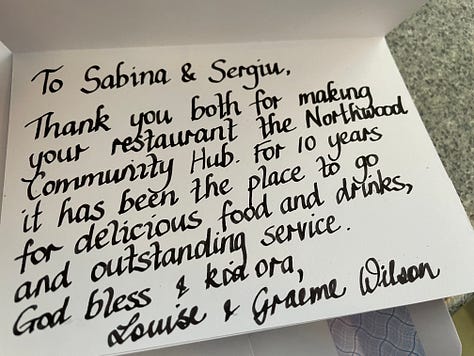 To Sabina & Sergiu,
Thank you both for making
your restaurant the Northwood
Community Hub. For 10 years
it has been the place to go
for delicious food and drinks,
and outstanding service.
God bless & kia ora,
Louise & Graeme Wilson